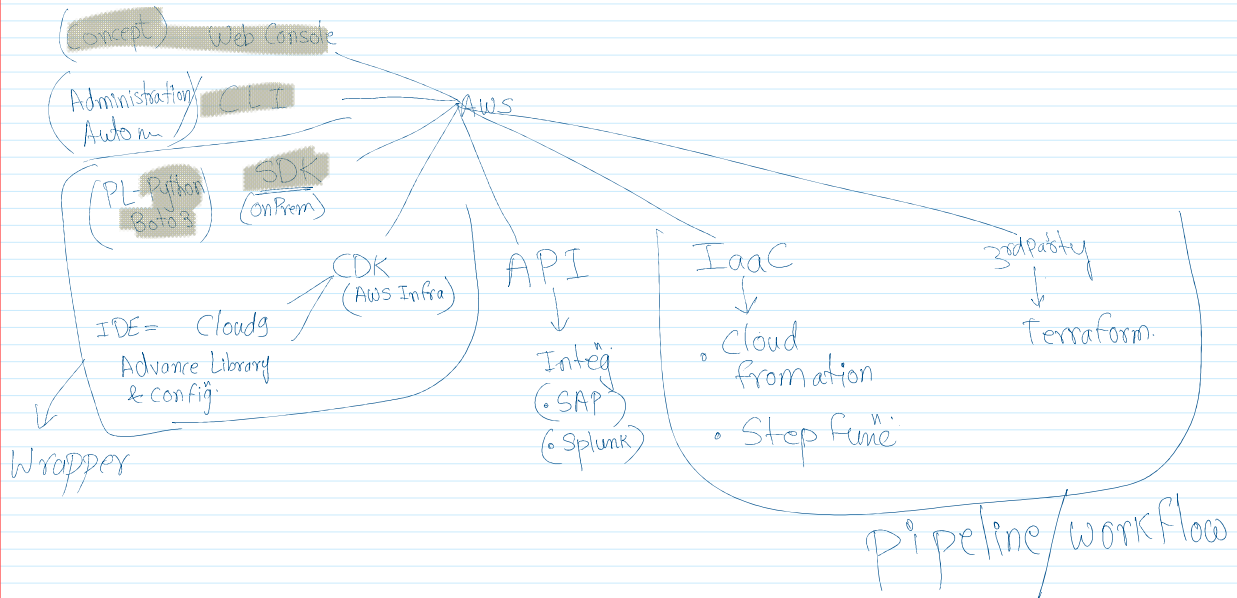 (Concept) Web Console
(Administration CLI
Autom)
AWS
(PL-Python SDK
Boto3) (OnPrem)
CDK
(AWS Infra)
IDE= Cloud9
Advance Library
& Confign.
Wrapper
API
Integn
(• SAP)
(• Splunk)
IaaC
• Cloud
fromation
• Step Funcn.
3rd Party
Terraform.
Pipeline/workflow